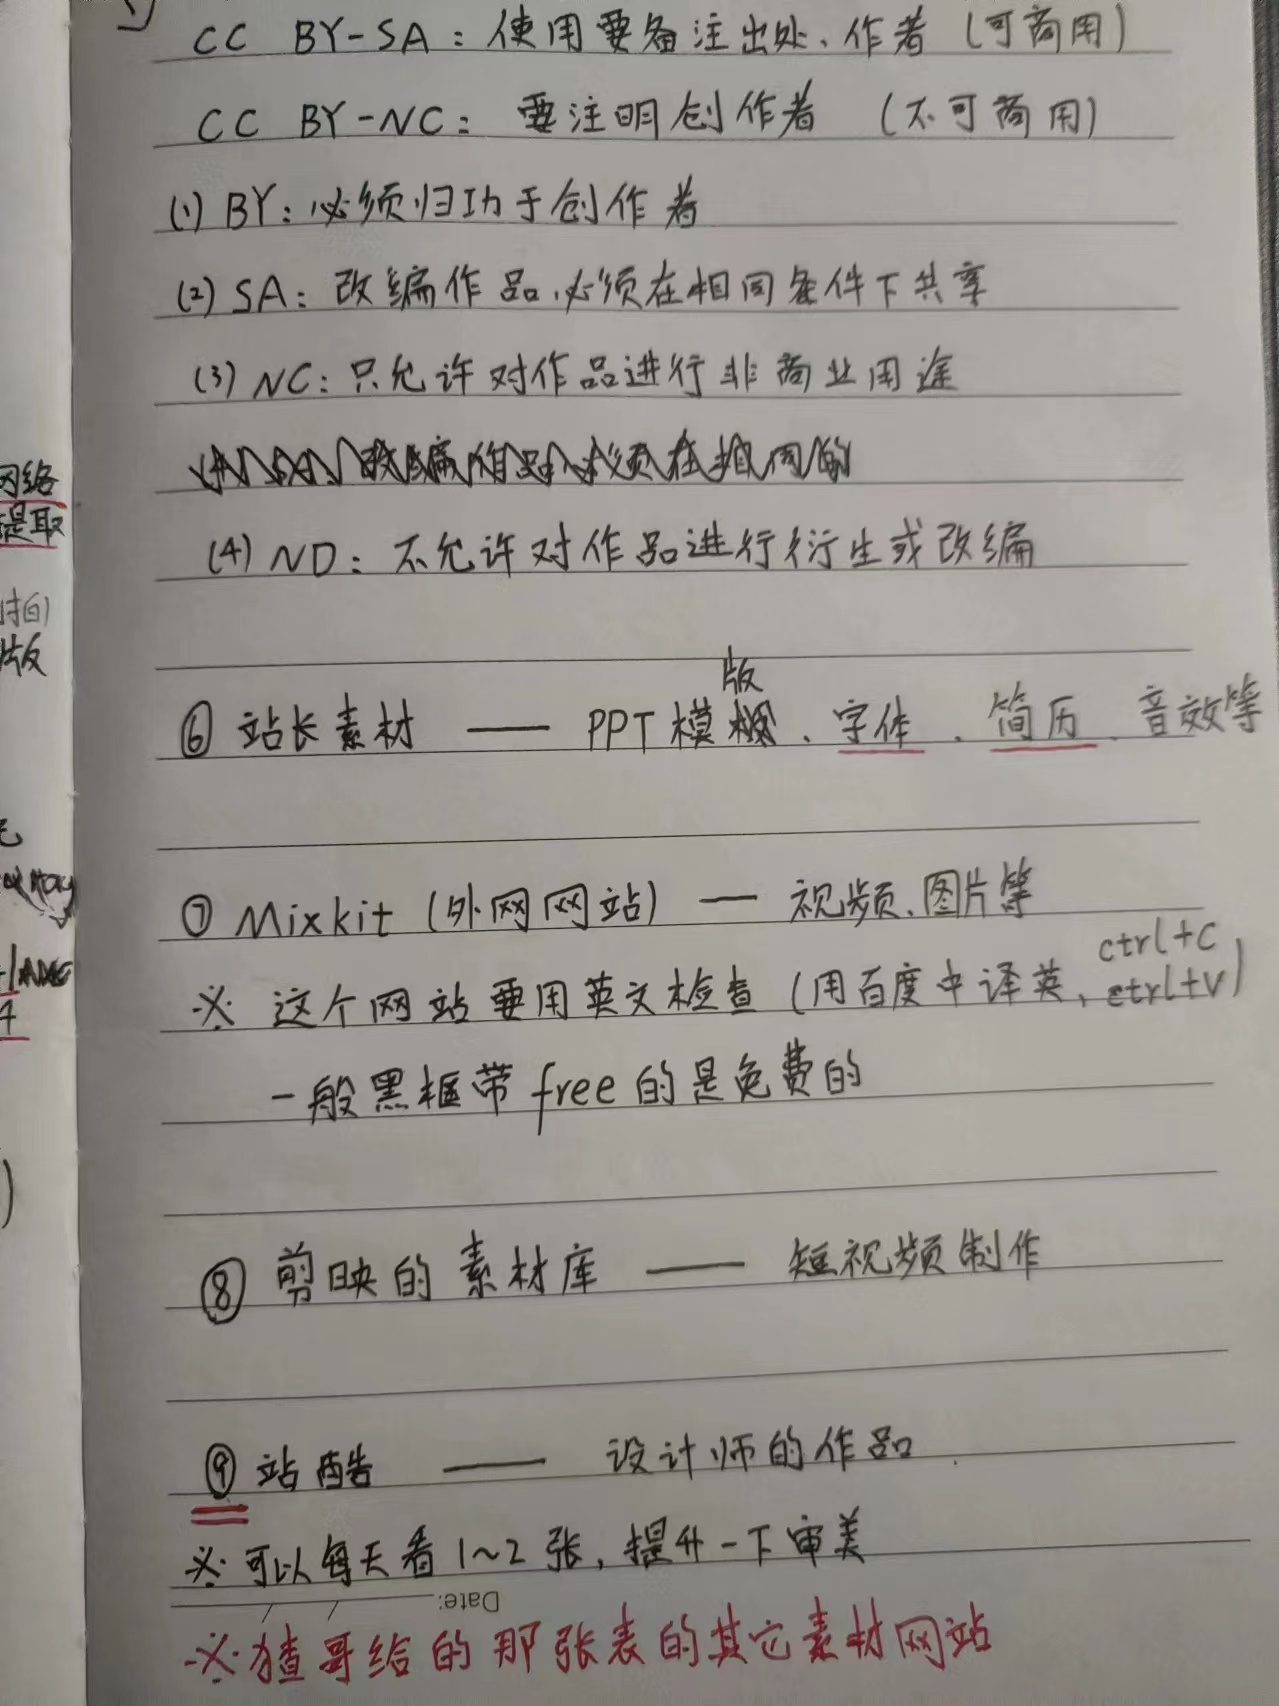 CC BY-SA：使用要备注出处、作者（可商用）
CC BY-NC：要注明创作者（不可商用）
(1) BY：必须归功于创作者
(2) SA：改编作品，必须在相同条件下共享
(3) NC：只允许对作品进行非商业用途
(4) ND：不允许对作品进行衍生或改编
⑥ 站长素材 —— PPT模版、字体、简历、音效等
⑦ Mixkit（外网网站）— 视频、图片等
※ 这个网站要用英文检查（用百度中译英，ctrl+C ctrl+V）
一般黑框带free的是免费的
⑧ 剪映的素材库 —— 短视频制作
⑨ 站酷 —— 设计师的作品
※ 可以每天看1~2张，提升一下审美
Date:
※ 猹哥给的那张表的其它素材网站
网络
提取
版
4